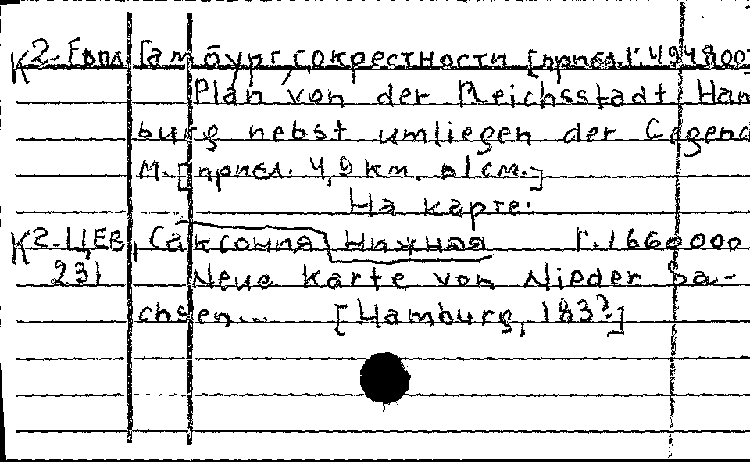 К2-Гдпл Гамбург, с окрестности [прибл. 1:494800]
Plan von der Reichsstadt Ham
burg nebst umliegen der Gegend
М. [прибл. 4,9 км. в 1 см.]
На карте:
К2-ЦЕВ, Саксония Нижная Г. 1660000
231 Neue Karte von Nieder Sa-
chsen... [Hamburg, 183?]